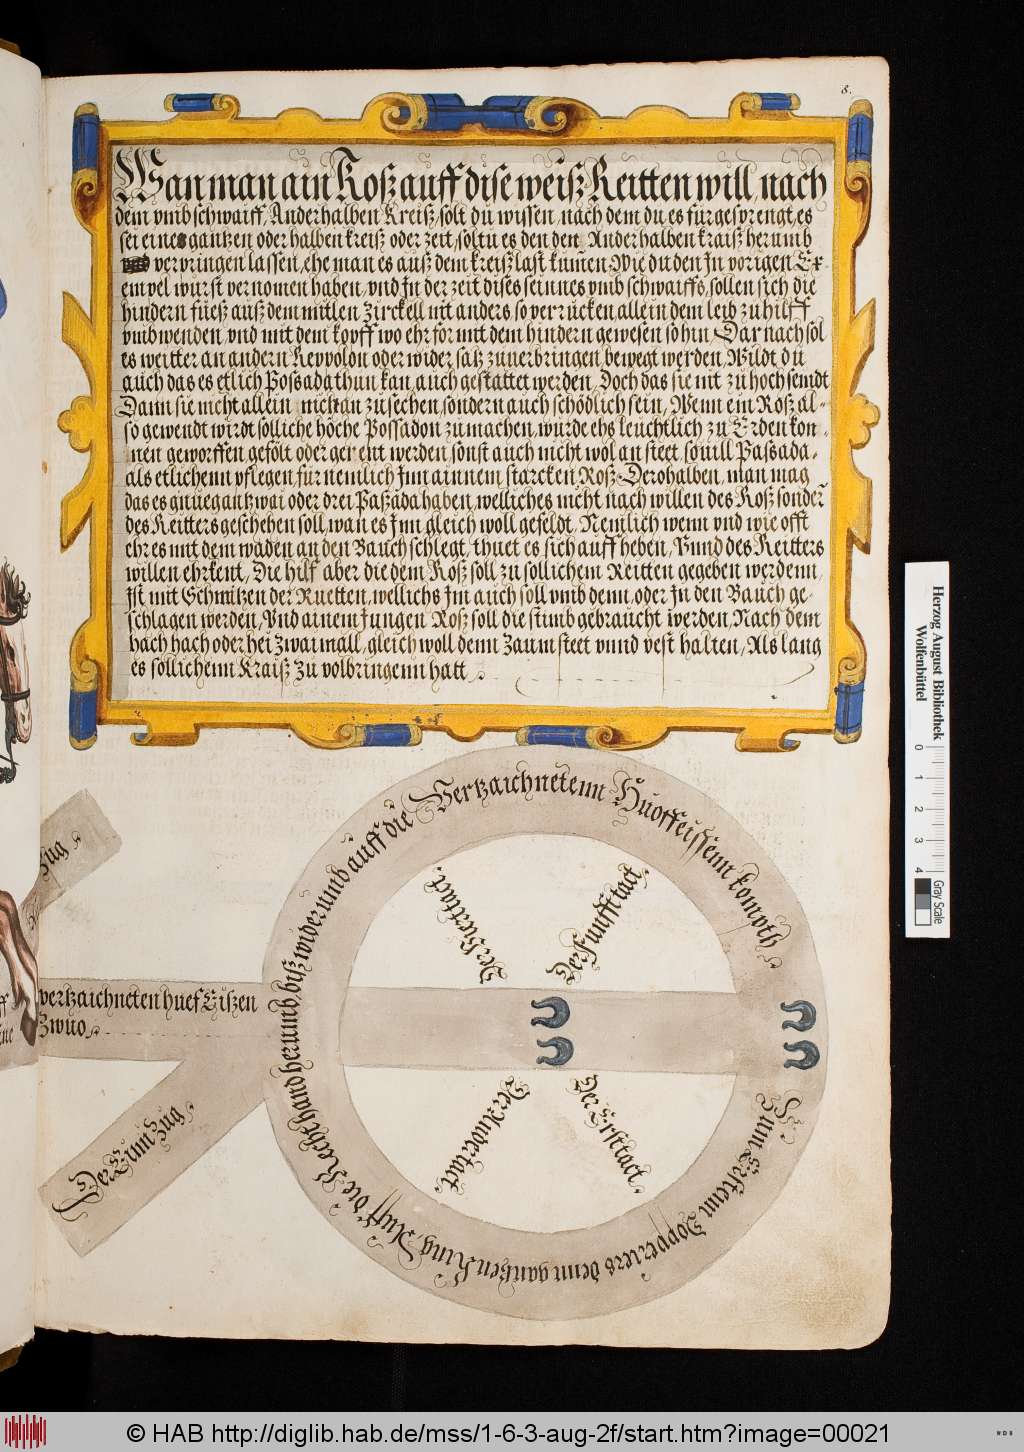 8.
Wan man ain Roß auff dise weiß Reitten will, nach
dem vmbschwaiff, Anderhalben Kreiß, solt du wissen, nach dem du es fürgesprengt, es
sei eines gantzen oder halben kreiß oder zeit, soltu es den den Anderhalben kraiß herumb
verpringen lassen, ehe man es auß dem kreiß last kumen, Wie du den Jn vorigen Ex-
empel würst vernomen haben, vnd Jn der zeit dises seinnes vmbschwaiffs, sollen sich die
hindern füeß auß dem mitlen Zirckell nit anders, so verrucken, allein dem leib zu hilff
vmbwenden, vnd mit dem kopff wo ehr for mit dem hindern gewesen so hin, Dar nach sol
es weitter an andern Reppolon oder wider satz zuuerbringen bewegt werden, Wildt du
auch das es etlich Possada thun kan, auch gestattet werden, Doch das sie nit zu hoch semdt
Dann sie nicht allein nicht an zusechen, sondern auch schödlich sein, Wenn ein Roß al-
so gewendt wirdt solliche höche Possadon zu machen, wurde ehs leuchtlich zu Erden kon-
nen geworffen gefölt oder ger ent werden sonst auch nicht wol an steet, so uill Passada,
als etlichenn pflegen fürnemlich Jnn ainnem starcken Roß, Derohalben, man mag
das es gnueg an zwai oder drei Paßada haben, welliches nicht nach willen des Roß sonder
des Reitters geschehen soll, wan es Jmi gleich woll gefeldt, Nemlich wenn vnd wie offt
ehr es mit dem waden an den Bauch schlegt, thuet es sich auff heben, Vnnd des Reitters
willen ehrkent, Die hilf aber die dem Roß soll zu sollichem Reitten gegeben werdenn,
Jst mit Schmitzen der Ruetten, wellichs Jm auch soll vmb denn, oder Jn den Bauch ge-
schlagen werden, Vnd ainem Jungen Roß soll die stimb gebraucht werden, Nach dem
hach hach oder hei zwai mall, gleich woll denn Zaum steet vnnd vest halten, Als lang
es sollichenn Kraiß zu volbringenn hatt
zug
verzaichneten huef Eißen
Zwuo
Der Einn zug
Zum Erstenn Dopperiers denn gantzen Ring, Auff die Recht hand herumb, biß widerumb auff die Vertzaichnetenn Huoffeissenn kompth
Der Viertact
Der Funfftact
Der Andertact
Der Ersttact
Herzog August Bibliothek
Wolfenbüttel
0 1 2 3 4
Gray Scale
© HAB http://diglib.hab.de/mss/1-6-3-aug-2f/start.htm?image=00021